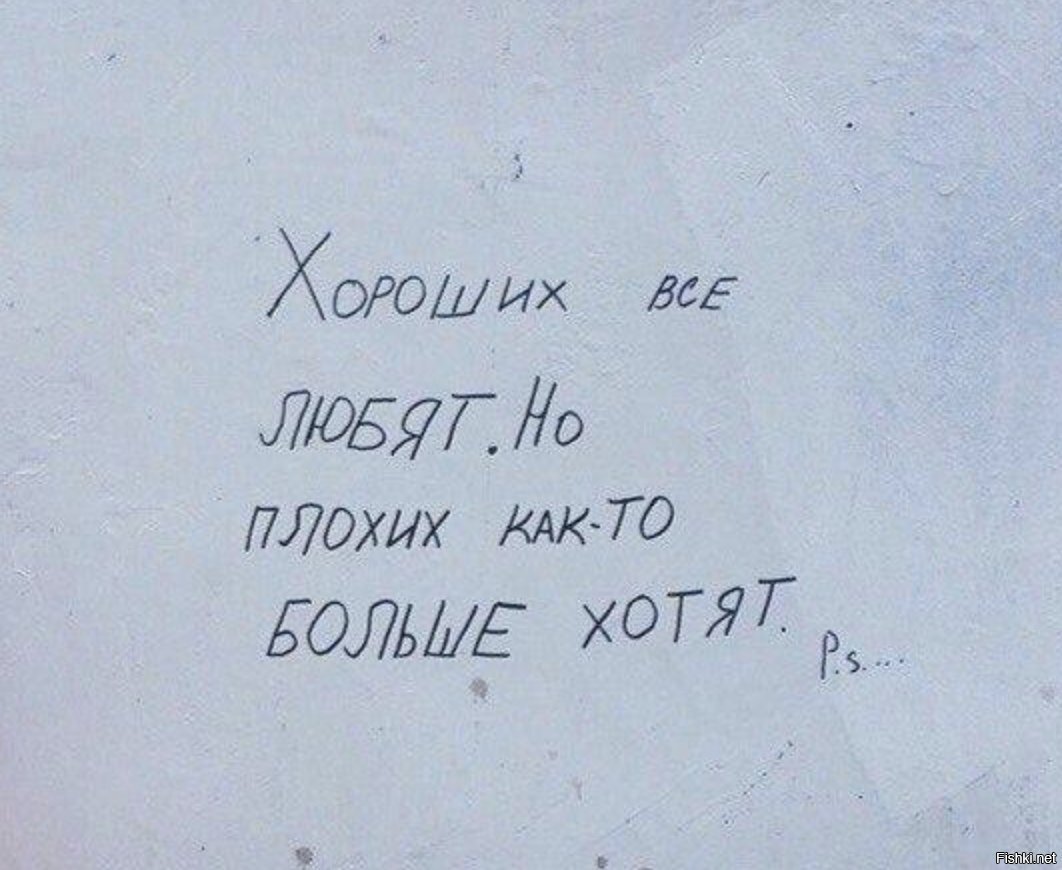 Хороших все
любят. Но
плохих как-то
больше хотят.
P.s....
Fishki.net